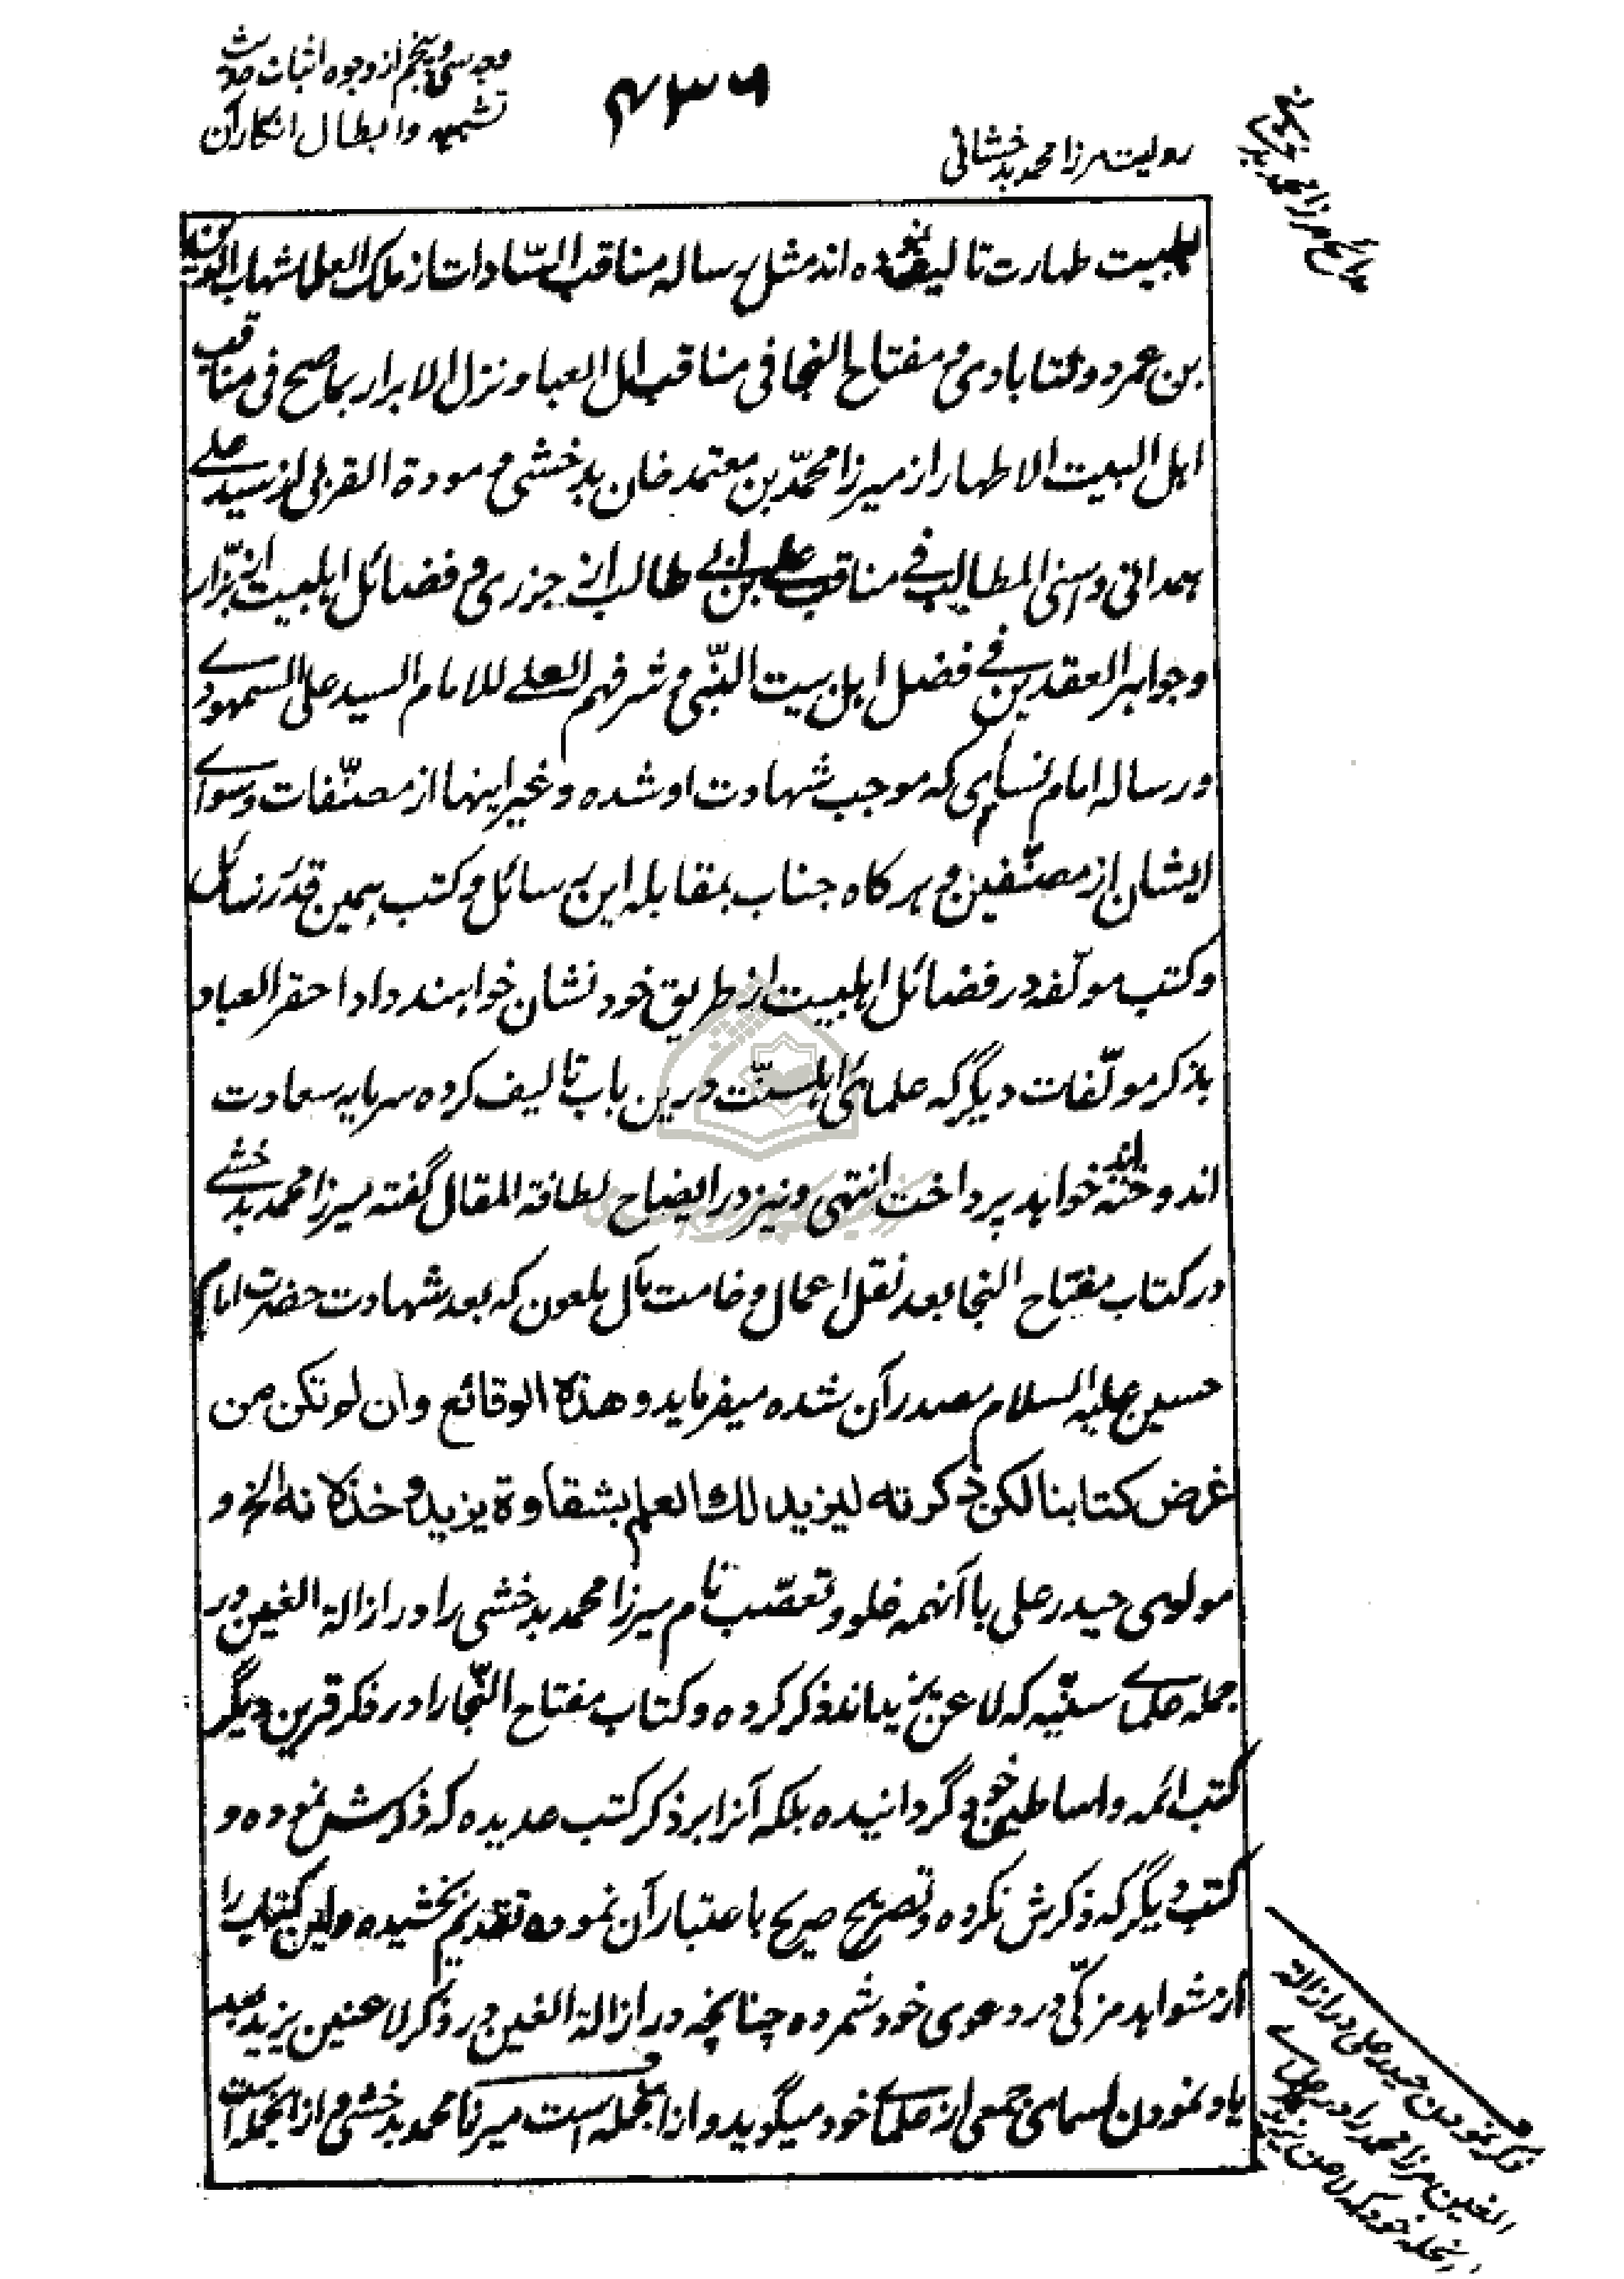 وجه سی و پنجم از وجوه اثبات حدیث
تشبیه و ابطال انکار آن
۴۳۶
روایت مرزا محمد بدخشانی
مدائح مرزا محمد
اهلبیت طهارت تالیف نموده اند مثل رساله مناقب السّادات از ملک العلما شهاب الدین
بن عمر دولتابادی و مفتاح النجا فی مناقب ال العبا و نزل الابرار بما صح فی مناقب
اهل البیت الاطهار از میرزا محمّد بن معتمد خان بدخشی و مودة القربی از سید علی
همدانی و اسنی المطالب فی مناقب علی بن ابی طالب از جزری و فضائل اهلبیت از بزّار
و جواهر العقدین فی فضل اهل بیت النّبی و شرفهم العلی للامام السید علی السمهودی
و رساله امام نسایی که موجب شهادت او شده و غیر اینها از مصنّفات و سوای
ایشان از مصنّفین و هر کاه جناب بمقابله این رسائل و کتب همین قدر رسائل
و کتب مولّفه در فضائل اهلبیت از طریق خود نشان خواهند داد احقر العباد
بذکر مولّفات دیگر که علمای اهلسنّت درین باب تالیف کرده سرمایه سعادت
اندوخته اند خواهد پرداخت انتهی و نیز در ایضاح لطافة المقال گفته میرزا محمد بدخشی
در کتاب مفتاح النجا بعد نقل اعمال وخامت مآل یلعون که بعد شهادت حضرت امام
حسین علیه السلام مصدر آن شده میفرماید و هذه الوقائع و ان لم تکن من
غرض کتابنا لکن ذکرته لیزید لك العلم بشقاوة یزید و خذلانه الخ و
مولوی حیدر علی با آنهمه غلو و تعصّب نام میرزا محمد بدخشی را در ازالة الغین در
جمله علمای سنّیه که لاعن یزیداند ذکر کرده و کتاب مفتاح النّجا را در ذکر قرین دیگر
کتب ائمه و اساطین خود گردانیده بلکه آنرا بر ذکر کتب عدیده که ذکرش نموده و
کتب دیگر که ذکرش نکرده و تصریح صریح باعتبار آن نموده تقدیم بخشیده و این کتاب را
از شواهد مزکّی در دعوی خود شمرده چنانچه در ازالة الغین در ذکر لاعنین یزید بعد
یاد نمودن اسمای جمعی از علمای خود میگوید و ازانجمله است میرزا محمد بدخشی و ازانجمله است
ذکر نمودن حیدر علی در ازالة
الغین مرزا محمد را در علمای
نحله خود که لاعن یزیدند